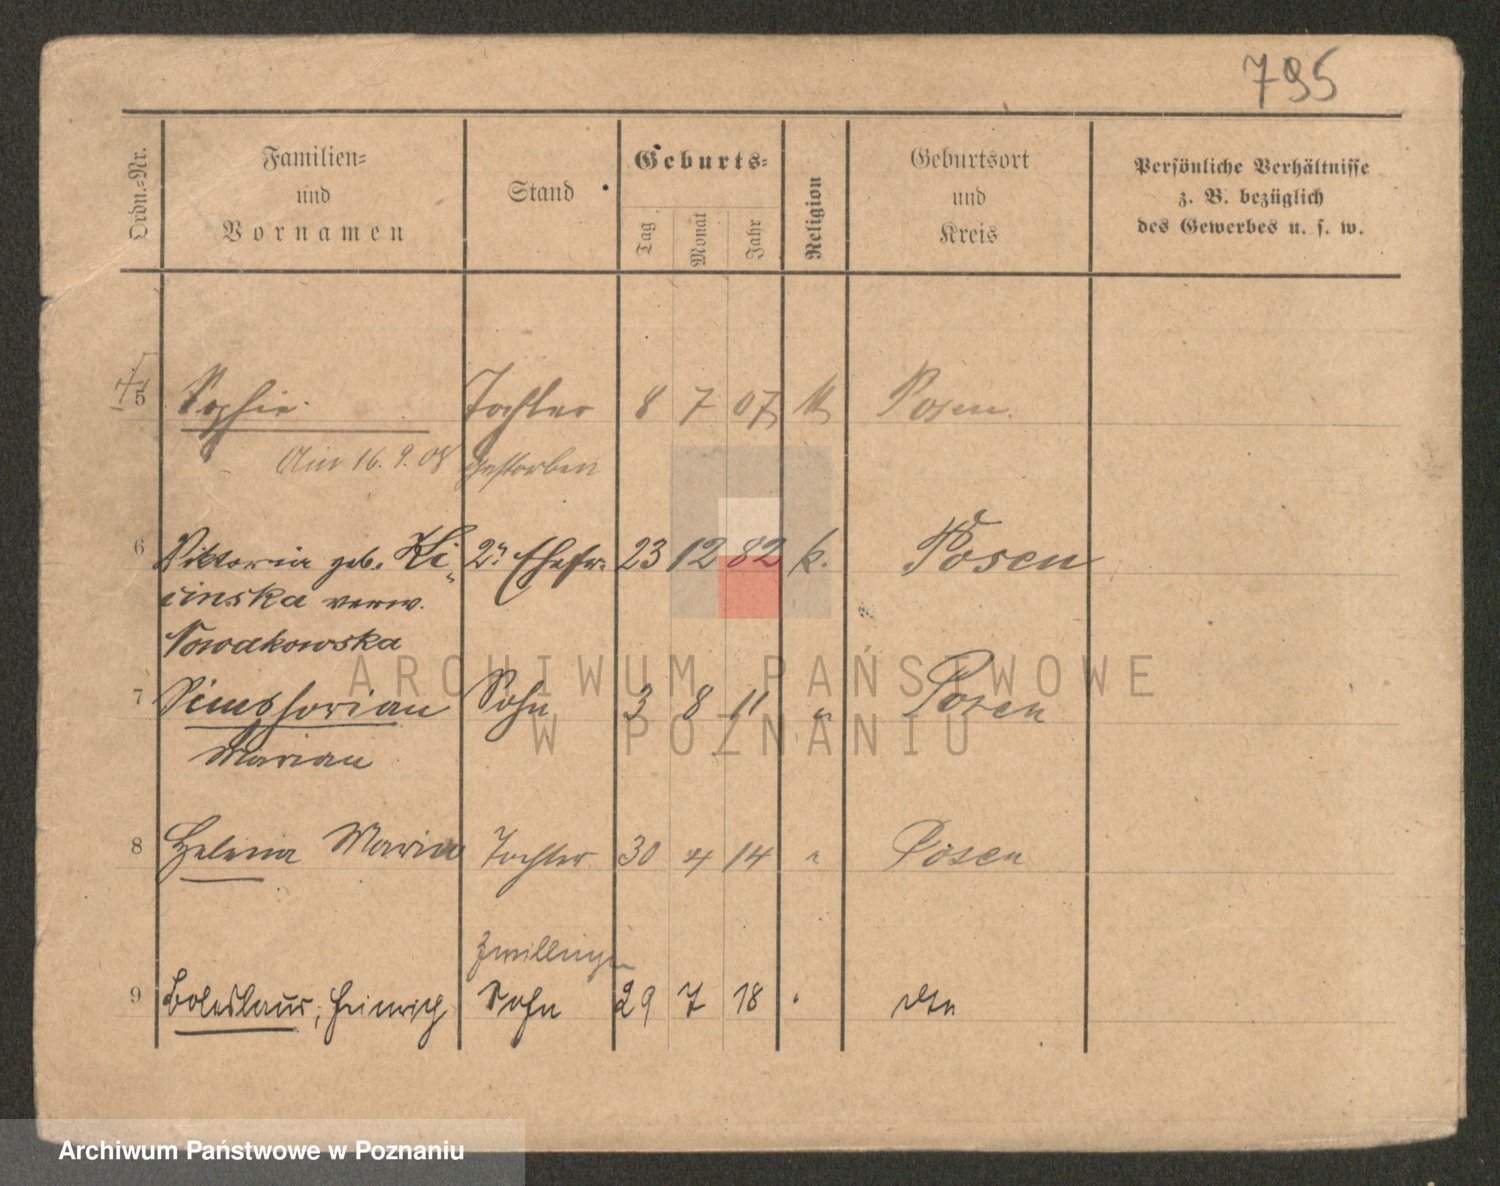 795
Ordn.-Nr.
Familien-
und
Vornamen
Stand
Geburts-
Tag
Monat
Jahr
Religion
Geburtsort
und
Kreis
Persönliche Verhältnisse
z. B. bezüglich
des Gewerbes u. s. w.
5 Sophie Tochter 8 7 07 Posen
Am 16. 9. 08 gestorben
6 Viktoria geb. Kli- 2te Ehefr. 23 12 82 k. Posen
cinska verw.
Nowakowska
7 Simphorian Sohn 3 8 11 " Posen
Marian
8 Helena Maria Tochter 30 4 14 " Posen
Zwillinge
9 Boleslaus, Heinrich Sohn 29 7 18 " dto
ARCHIWUM PAŃSTWOWE
W POZNANIU
Archiwum Państwowe w Poznaniu